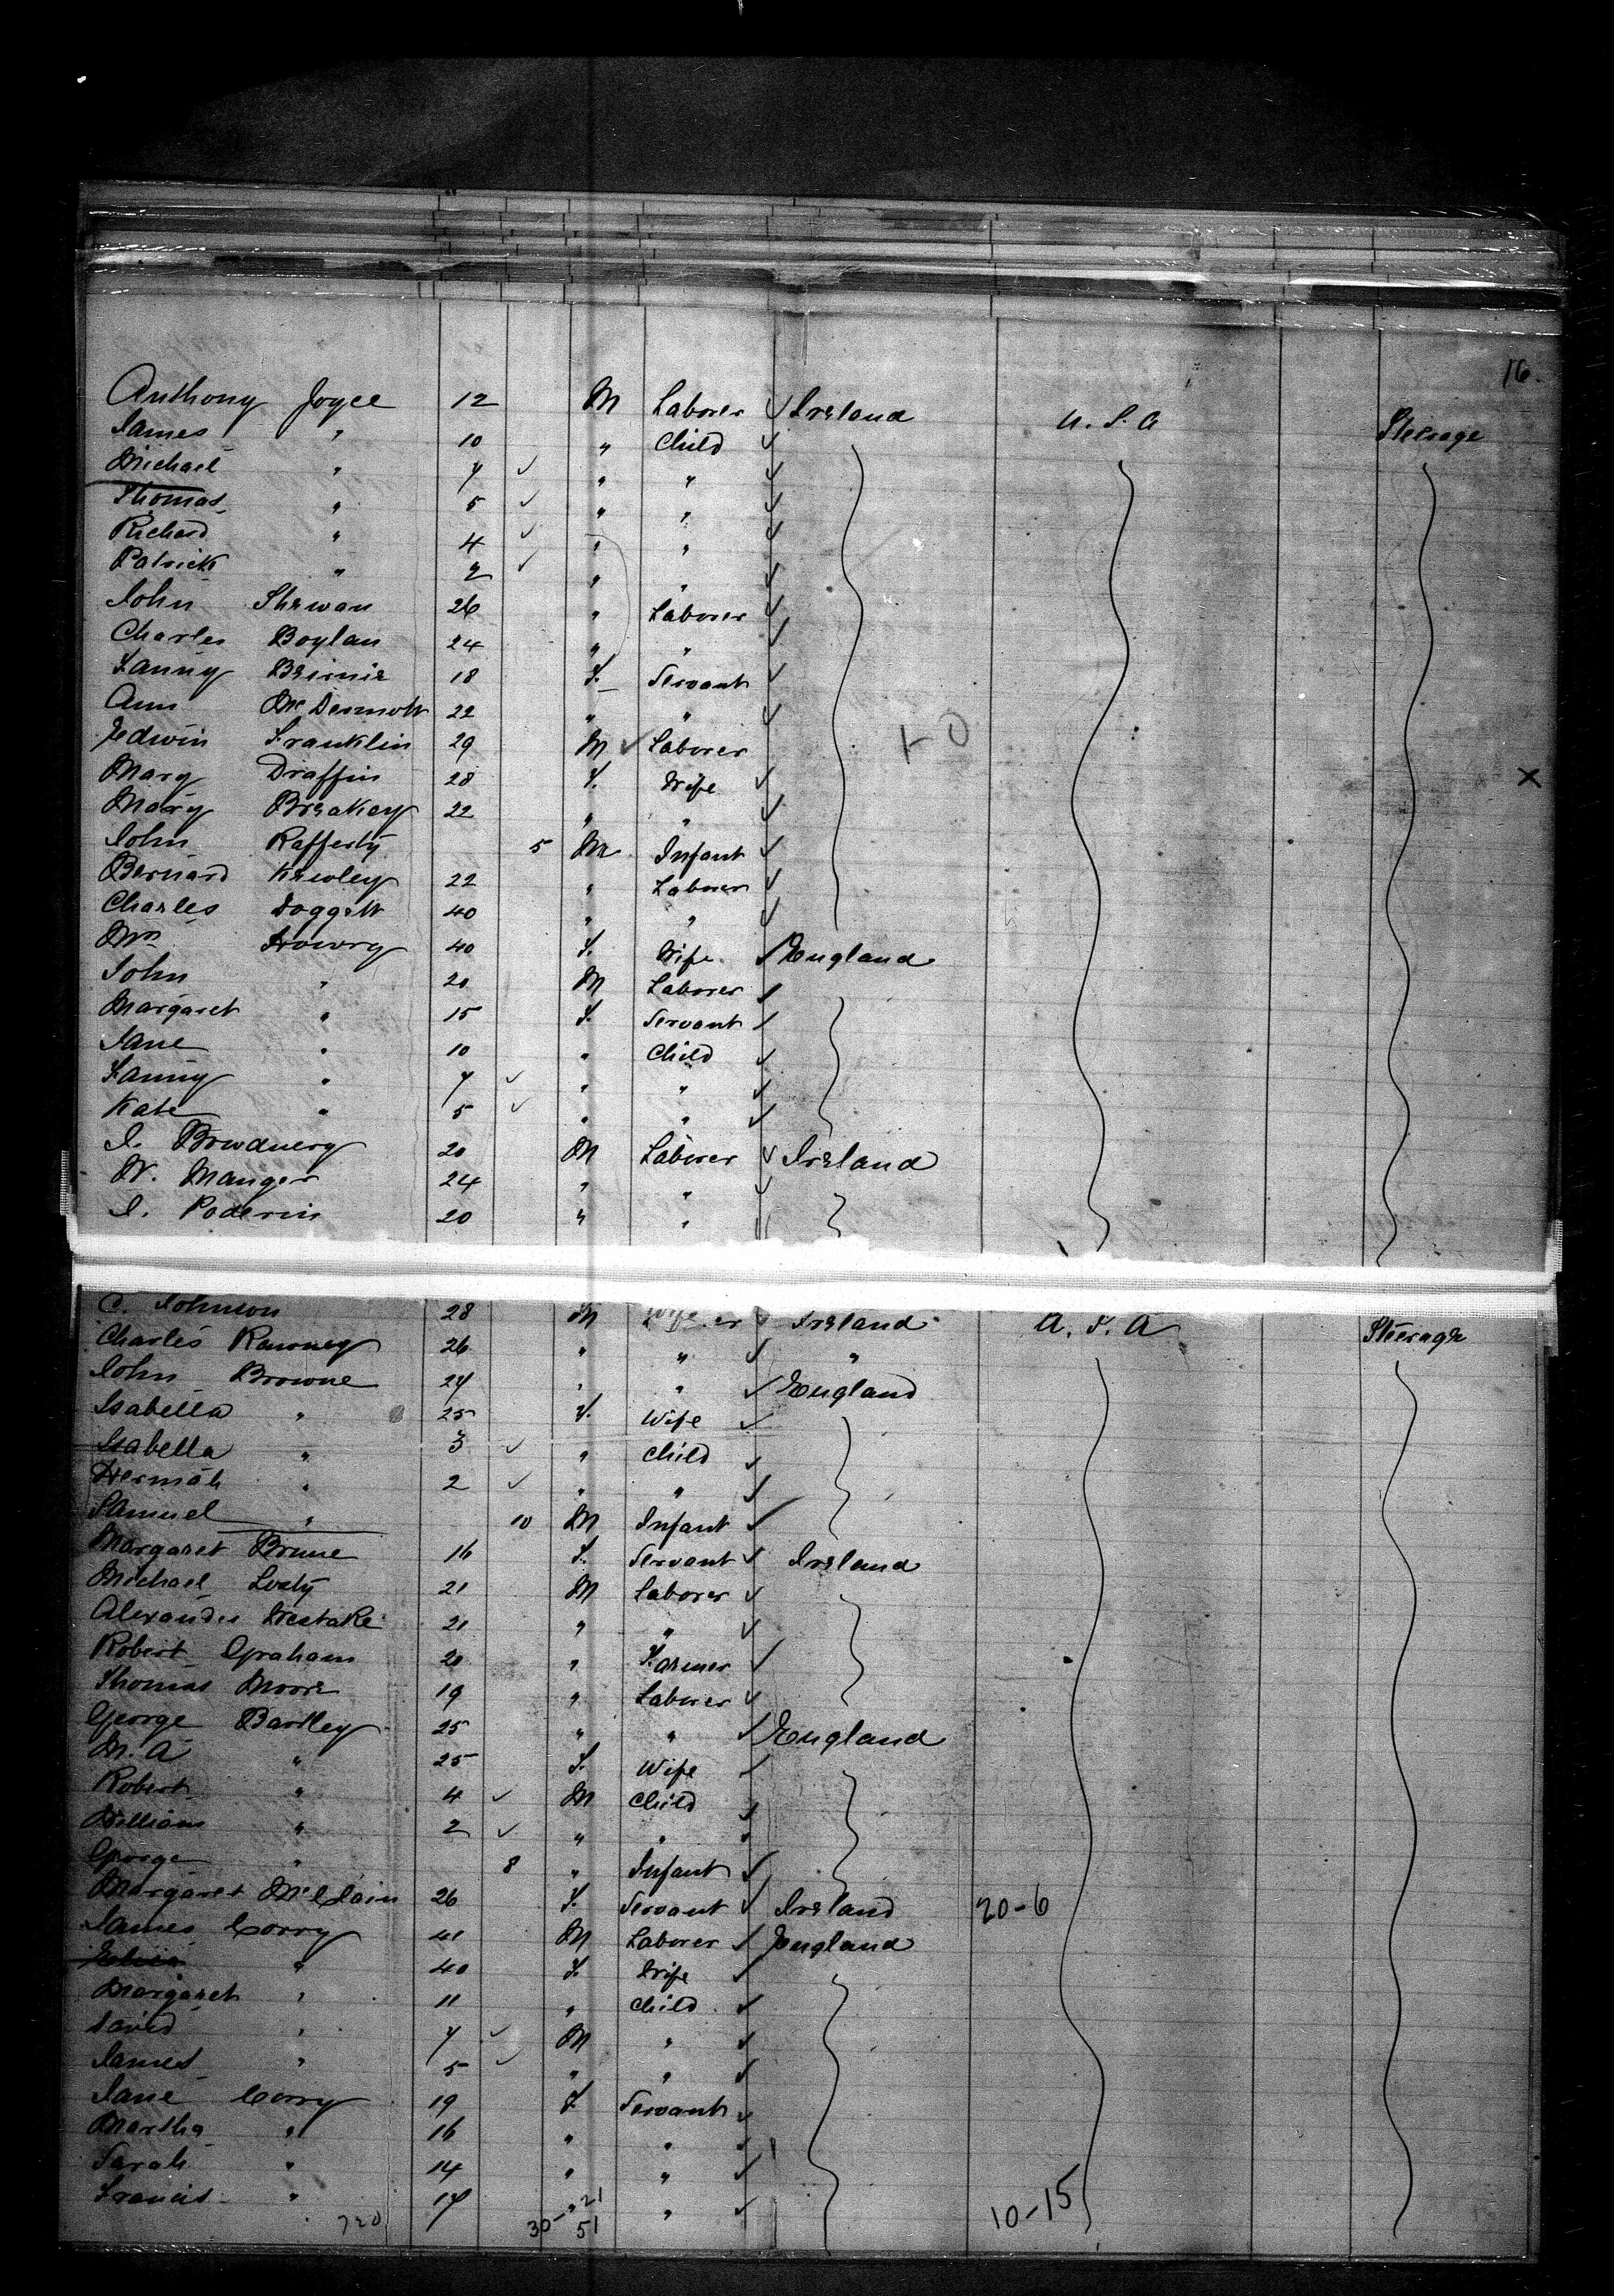 16.
Anthony Joyce 12 M Laborer ✓ Ireland U.S.A Steerage
James " 10 " Child ✓
Michael " 7 ✓ " " ✓
Thomas " 5 ✓ " " ✓
Richard " 4 ✓ " " ✓
Patrick " 2 ✓ " " ✓
John 26 " Laborer ✓
Charles Boylan 24 " " ✓
Fanny 18 F. Servant ✓
Ann McDermott 22 " " ✓
Edwin Franklin 29 M ✓ Laborer
Mary Draffin 28 F. Wife ✓ X
Mary Breakey 22 " " ✓
John Rafferty 5 M Infant ✓
Bernard 22 " Laborer ✓
Charles Doggett 40 " " ✓
Mrs 40 F. Wife ✓ England
John " 20 M Laborer ✓
Margaret " 15 F. Servant ✓
Jane " 10 " Child ✓
Fanny " 7 ✓ " " ✓
Kate " 5 ✓ " " ✓
J. 20 M Laborer ✓ Ireland
W. Manger 24 " " ✓
J. 20 " "
C. Johnson 28 M Ireland U.S.A Steerage
Charles 26 " " ✓ "
John Browne 27 " " ✓ England
Isabella " 25 F. Wife ✓
Isabella " 3 ✓ " Child ✓
2 ✓ " " ✓
Samuel " 10 M Infant ✓
Margaret Brune 16 F. Servant ✓ Ireland
Michael 21 M Laborer ✓
Alexander 21 " " ✓
Robert Graham 20 " Farmer ✓
Thomas Moore 19 " Laborer ✓
George Bartley 25 " " ✓ England
M. A " 25 F. Wife ✓
Robert " 4 ✓ M Child ✓
William " 2 ✓ " " ✓
George " 8 " Infant ✓
Margaret McClain 26 F. Servant ✓ Ireland 20-6
James Corry 41 M Laborer ✓ England
" 40 F. Wife ✓
Margaret " 11 " Child ✓
David " 7 ✓ M " ✓
James " 5 ✓ " " ✓
Jane Corry 19 F Servant ✓
Martha " 16 " " ✓
Sarah " 14 " " ✓
Francis " 17 " " ✓ 10-15
720 30- 21
51